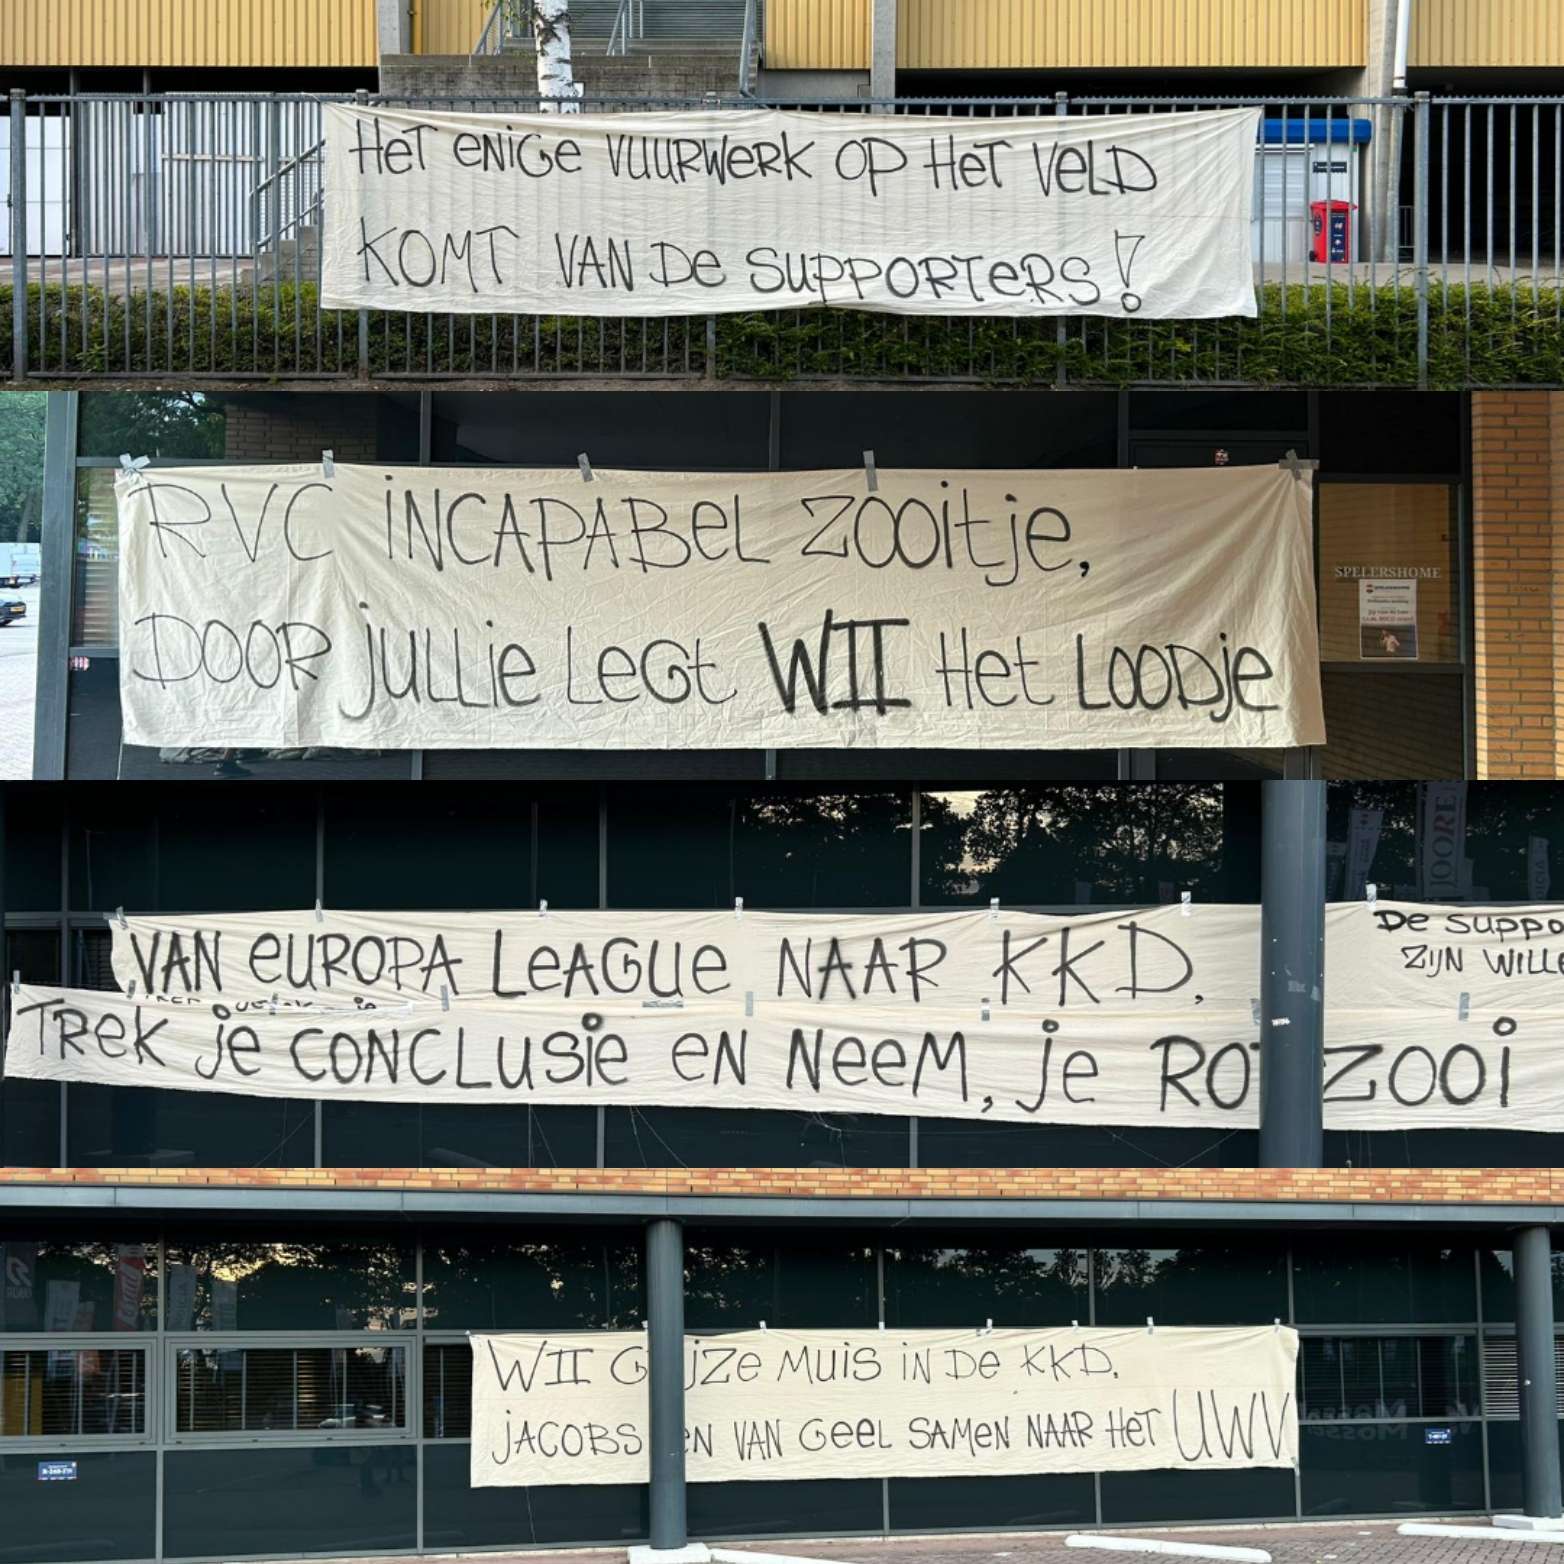 HET ENIGE VUURWERK OP HET VELD
KOMT VAN DE SUPPORTERS!
RVC INCAPABEL ZOOITJE,
DOOR JULLIE LEGT WII HET LOODJE
SPELERSHOME
JOORE
VAN EUROPA LEAGUE NAAR KKD.
TREK JE CONCLUSIE EN NEEM, JE ROTZOOI
DE SUPPO
ZIJN WILLE
WII G JZE MUIS IN DE KKD.
JACOBS EN VAN GEEL SAMEN NAAR HET UWV